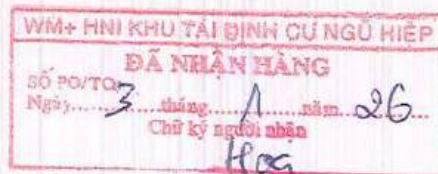 WM+ HNI KHU TÁI ĐỊNH CƯ NGŨ HIỆP
ĐÃ NHẬN HÀNG
SỐ PO/TO
Ngày 3 tháng 1 năm 26
Chữ ký người nhận
Hoa